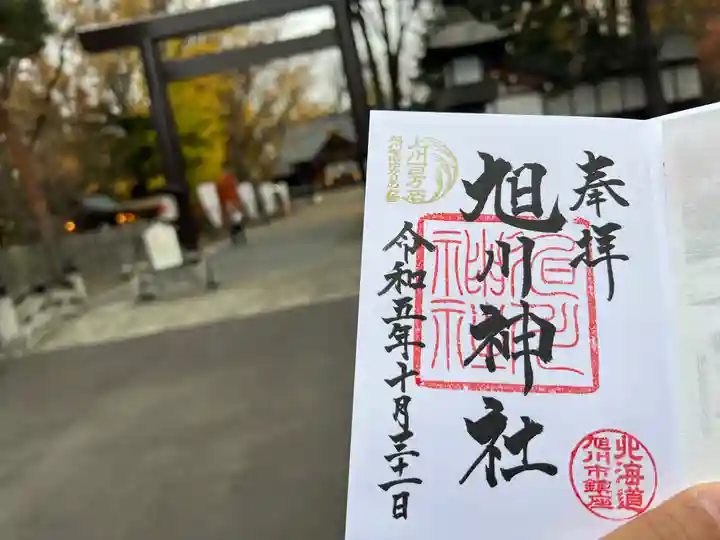 奉拝
旭川神社
令和五年十月三十一日
北海道
旭川市鎮座